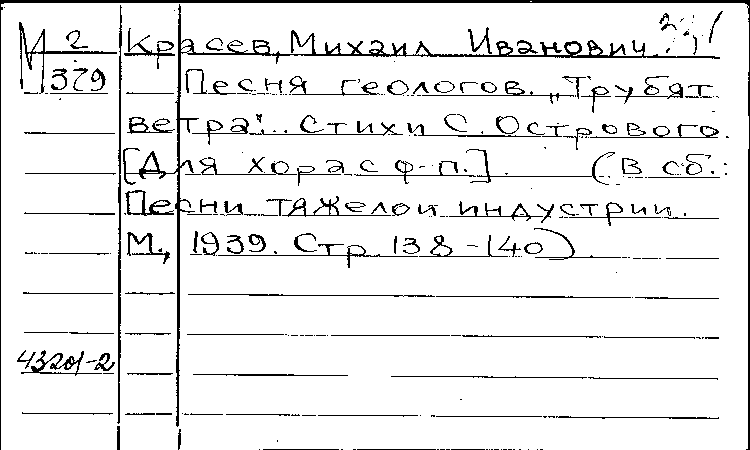 М 2 Красев, Михаил Иванович 331
379 Песня геологов. „Трубят
ветра“.. Стихи С. Острового.
[Для хора с ф-п.]. (В сб.:
Песни тяжелой индустрии.
М., 1939. Стр. 138-140).
43201-2